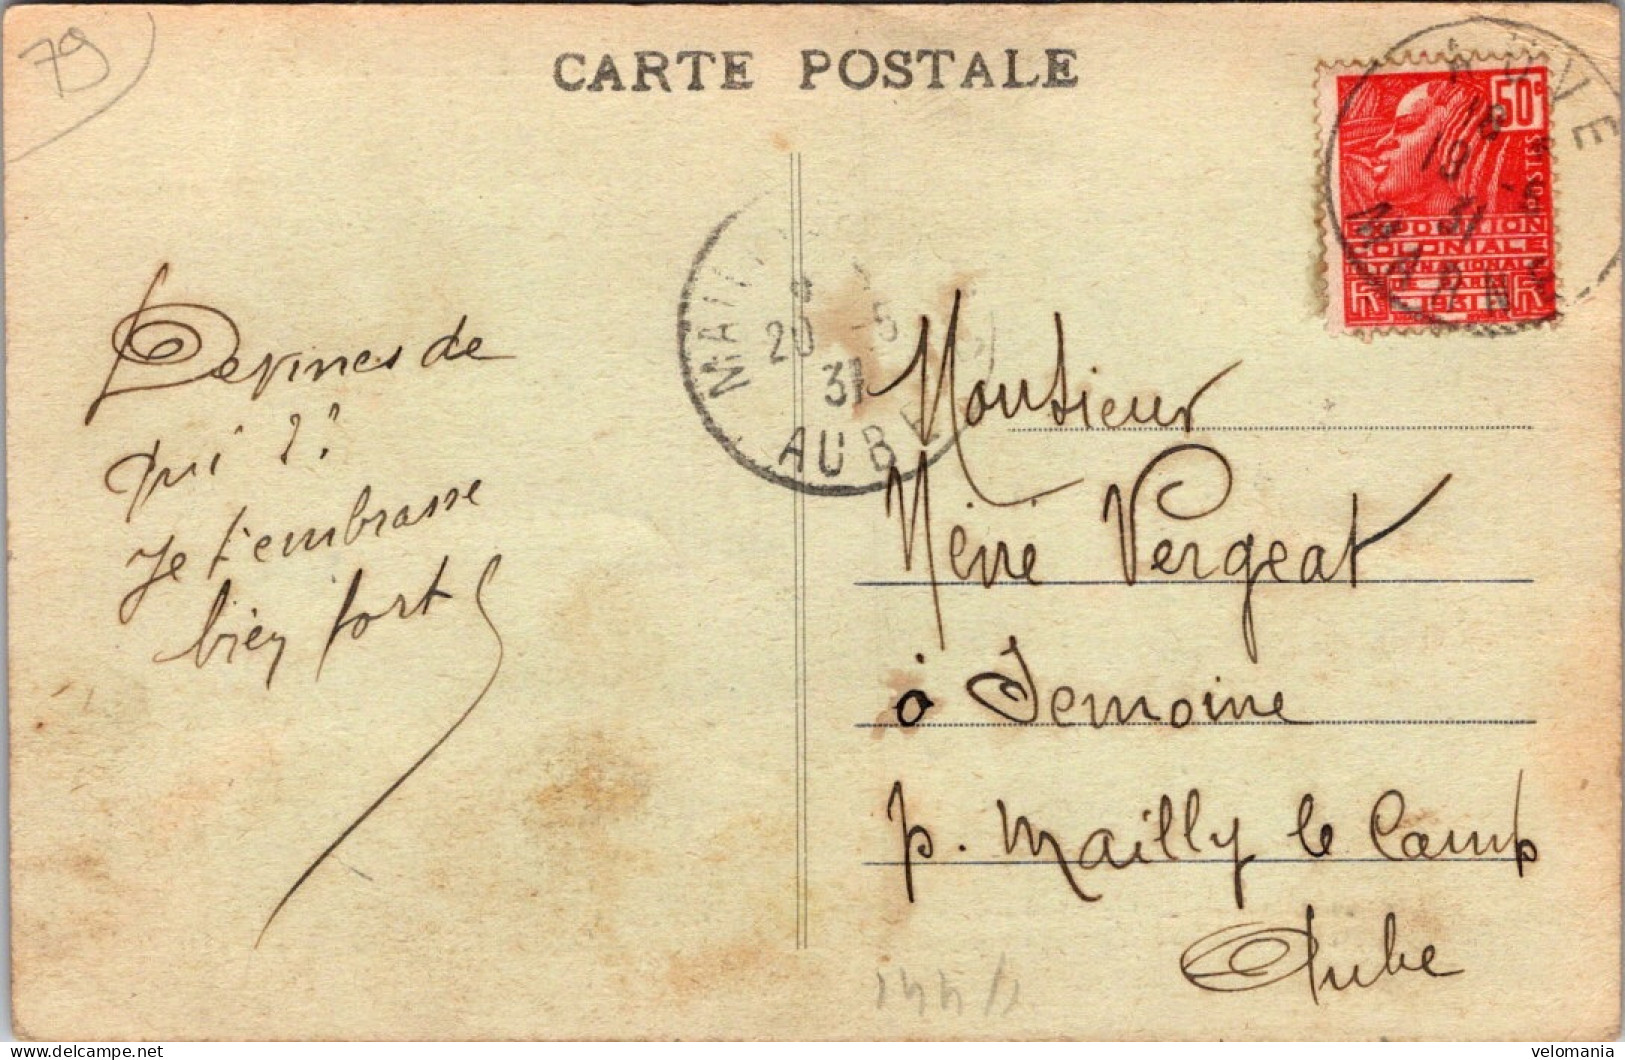 79
CARTE POSTALE
50c
POSTES
EXPOSITION
COLONIALE
INTERNATIONALE
DE PARIS
1931
RF
AUVE
18
19 -5
31
MARNE
MAILLY
8
20 -5
31
AUBE
Devines de
qui ??
Je t'embrasse
bien fort
Monsieur
Néné Vergeat
à Semoine
p. Mailly le Camp
Aube
delcampe.net
velomania